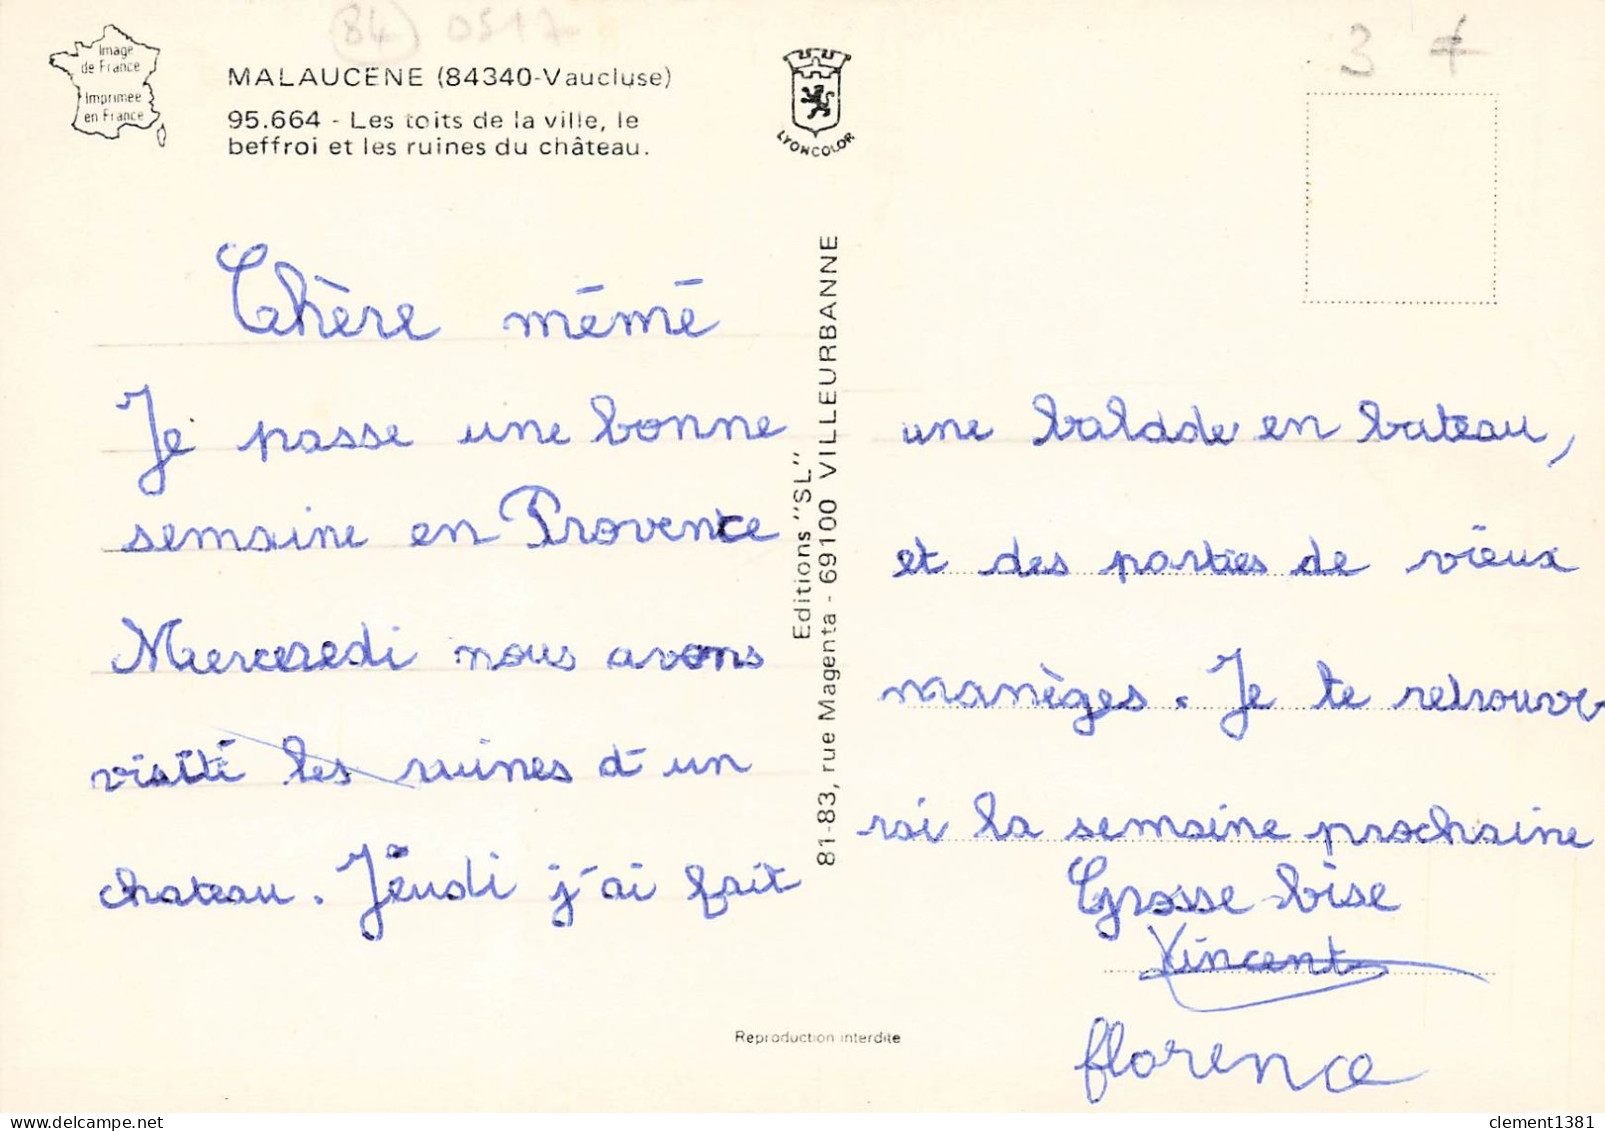 (84) 0517
3 f
Image
de France
Imprimée
en France
MALAUCÈNE (84340-Vaucluse)
95.664 - Les toits de la ville, le
beffroi et les ruines du château.
LYONCOLOR
Chère mémé
Je passe une bonne
semaine en Provence
Mercredi nous avons
visité les ruines d'un
chateau. Jeudi j'ai fait
Editions "SL"
81-83, rue Magenta - 69100 VILLEURBANNE
une balade en bateau,
et des parties de vieux
manèges. Je te retrouve
rai la semaine prochaine
Grosse bise
Vincent
florence
Reproduction interdite
clement1381